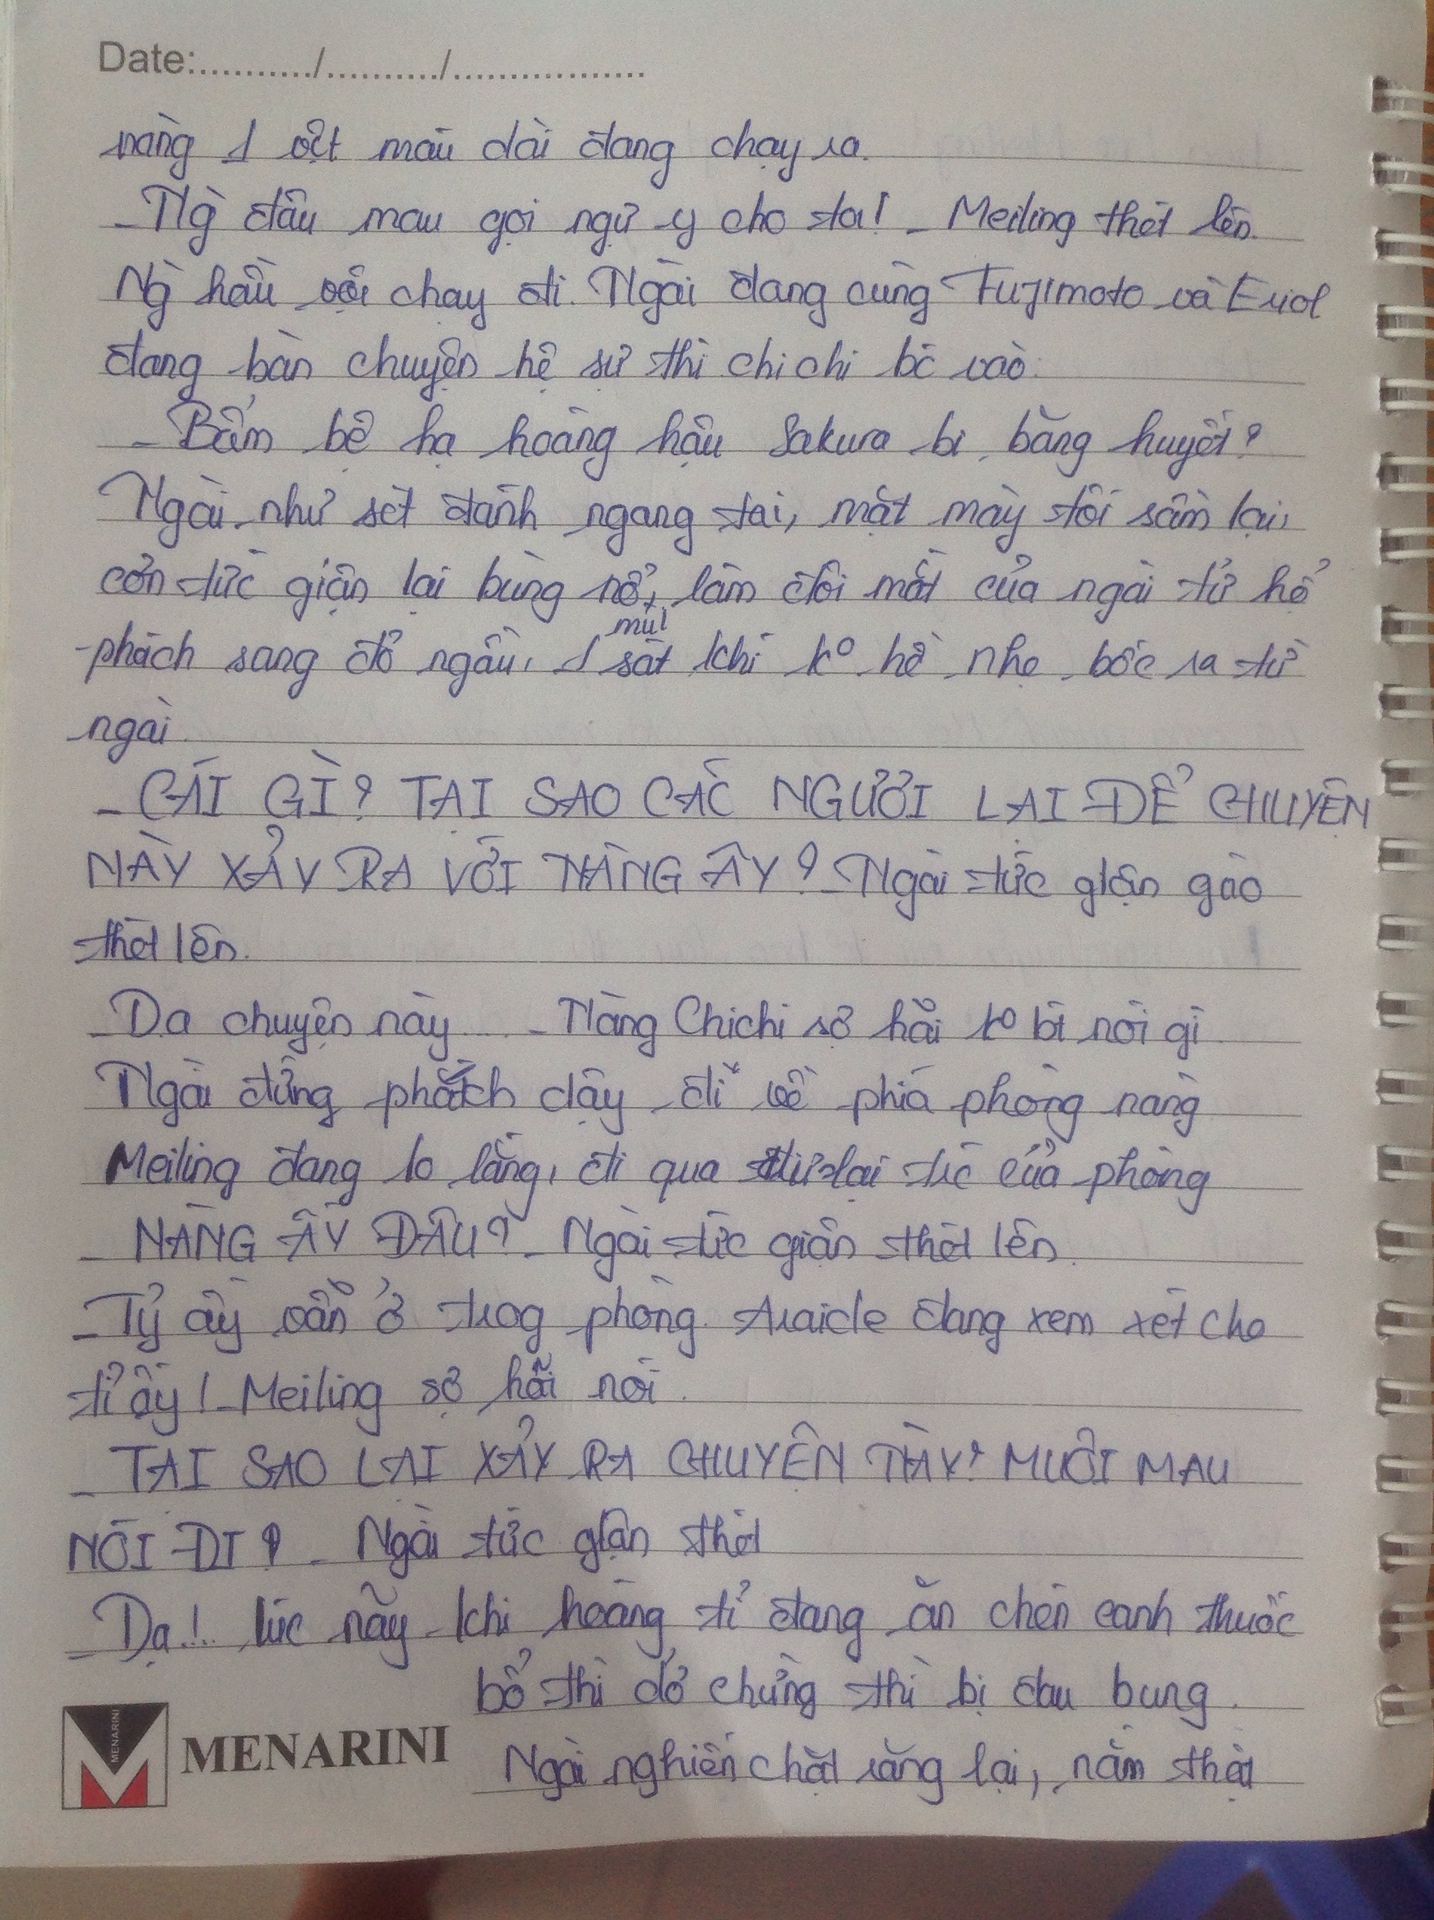 Date:.........../........../.................
nàng 1 vệt máu dài đang chạy ra.
_ Ng` đâu mau gọi ngự y cho ta! _ Meiling thét lên.
Ng` hầu vội chạy đi. Ngài đang cùng Fujimoto và Eriol
đang bàn chuyện hệ sự thì chichi bc vào.
_ Bẩm bệ hạ hoàng hậu Sakura bị băng huyết?
Ngài như sét đánh ngang tai, mặt mày tối sầm lại,
cơn tức giận lại bùng nổ, làm đôi mắt của ngài từ hổ
phách sang đỏ ngầu, 1 mùi sát khí ko hề nhẹ bốc ra từ
ngài.
_ CÁI GÌ? TẠI SAO CÁC NGƯƠI LẠI ĐỂ CHUYỆN
NÀY XẢY RA VỚI NÀNG ẤY? _ Ngài tức giận gào
thét lên.
_ Dạ chuyện này ... _ Nàng Chichi sợ hãi ko bít nói gì
Ngài đứng phách dậy, đi về phía phòng nàng
Meiling đang lo lắng, đi qua đi lại trc cửa phòng
_ NÀNG ẤY ĐÂU? _ Ngài tức giận thét lên.
_ Tỷ ấy vẫn ở trog phòng. Araide đang xem xét cho
tỉ ấy! _ Meiling sợ hãi nói.
_ TẠI SAO LẠI XẢY RA CHUYỆN NÀY? MUỘI MAU
NÓI ĐI? _ Ngài tức giận thét
_ Dạ!.. lúc nãy khi hoàng tỉ đang ăn chén canh thuốc
bổ thì đở chừng thì bị đau bụng.
Ngài nghiến chặt răng lại, nắm thật
MENARINI
MENARINI